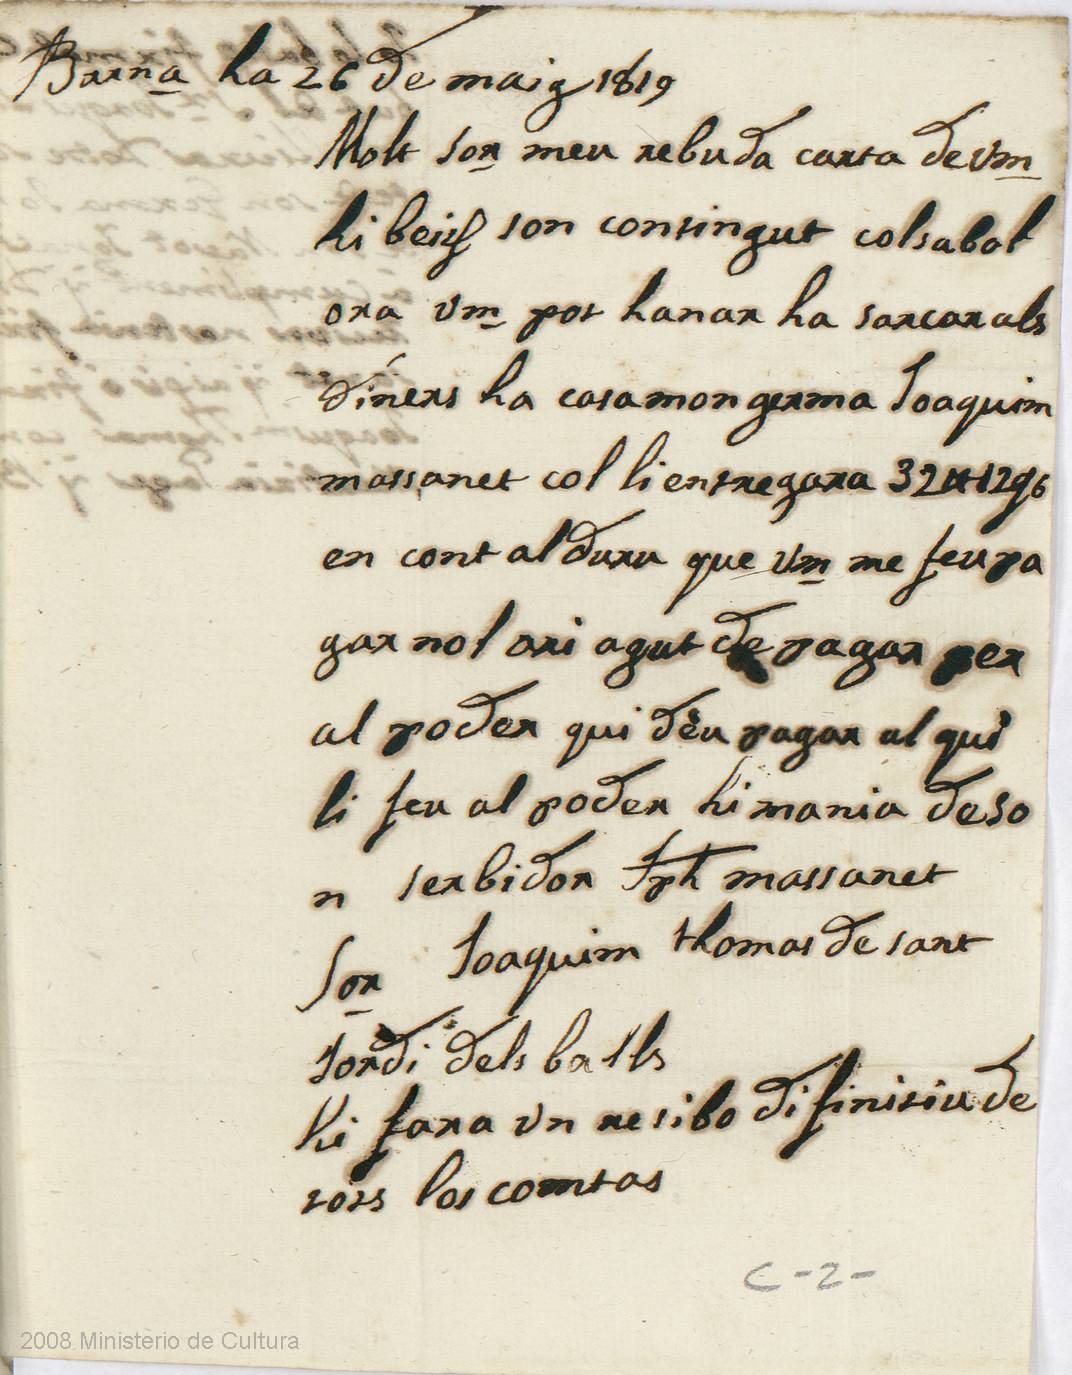 Barna ha 26 de maig 1819
Molt Sor meu rebuda carta de Vm
hi beig son contingut col sabol
ora Vm pot hanar ha sarcar als
diners ha casa mon germa Joaquim
massanet col li entregara 32 ₶ 12 g 6
en cont al duru que Vm me feu pa
gar nol ari agut de pagar per
al poder qui deu pagar al qui
li feu al poder hi mania de so
n serbidor Jph massanet
Sor Joaquim thomas de sant
Jordi dels balls
hi fara un resibo difinitiu de
tots los comtas
C-2-
2008 Ministerio de Cultura